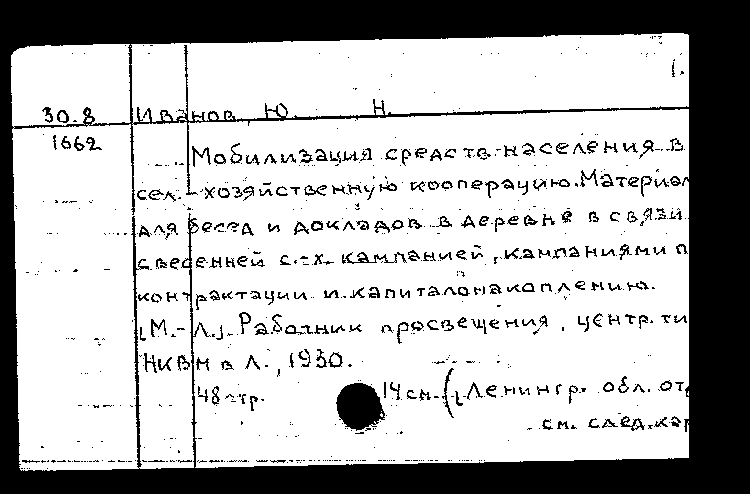 1.
30.8 Иванов, Ю. Н.
1662
Мобилизация средств населения в
сел.-хозяйственную кооперацию. Материал
для бесед и докладов в деревне в связи
с весенней с.-х. кампанией, кампаниями п
контрактации и капиталонакоплению.
[М.-Л.]. Работник просвещения, центр. ти
НКВМ в Л., 1930.
48 стр. 14 см. ([Ленингр. обл. отд
см. след. кар